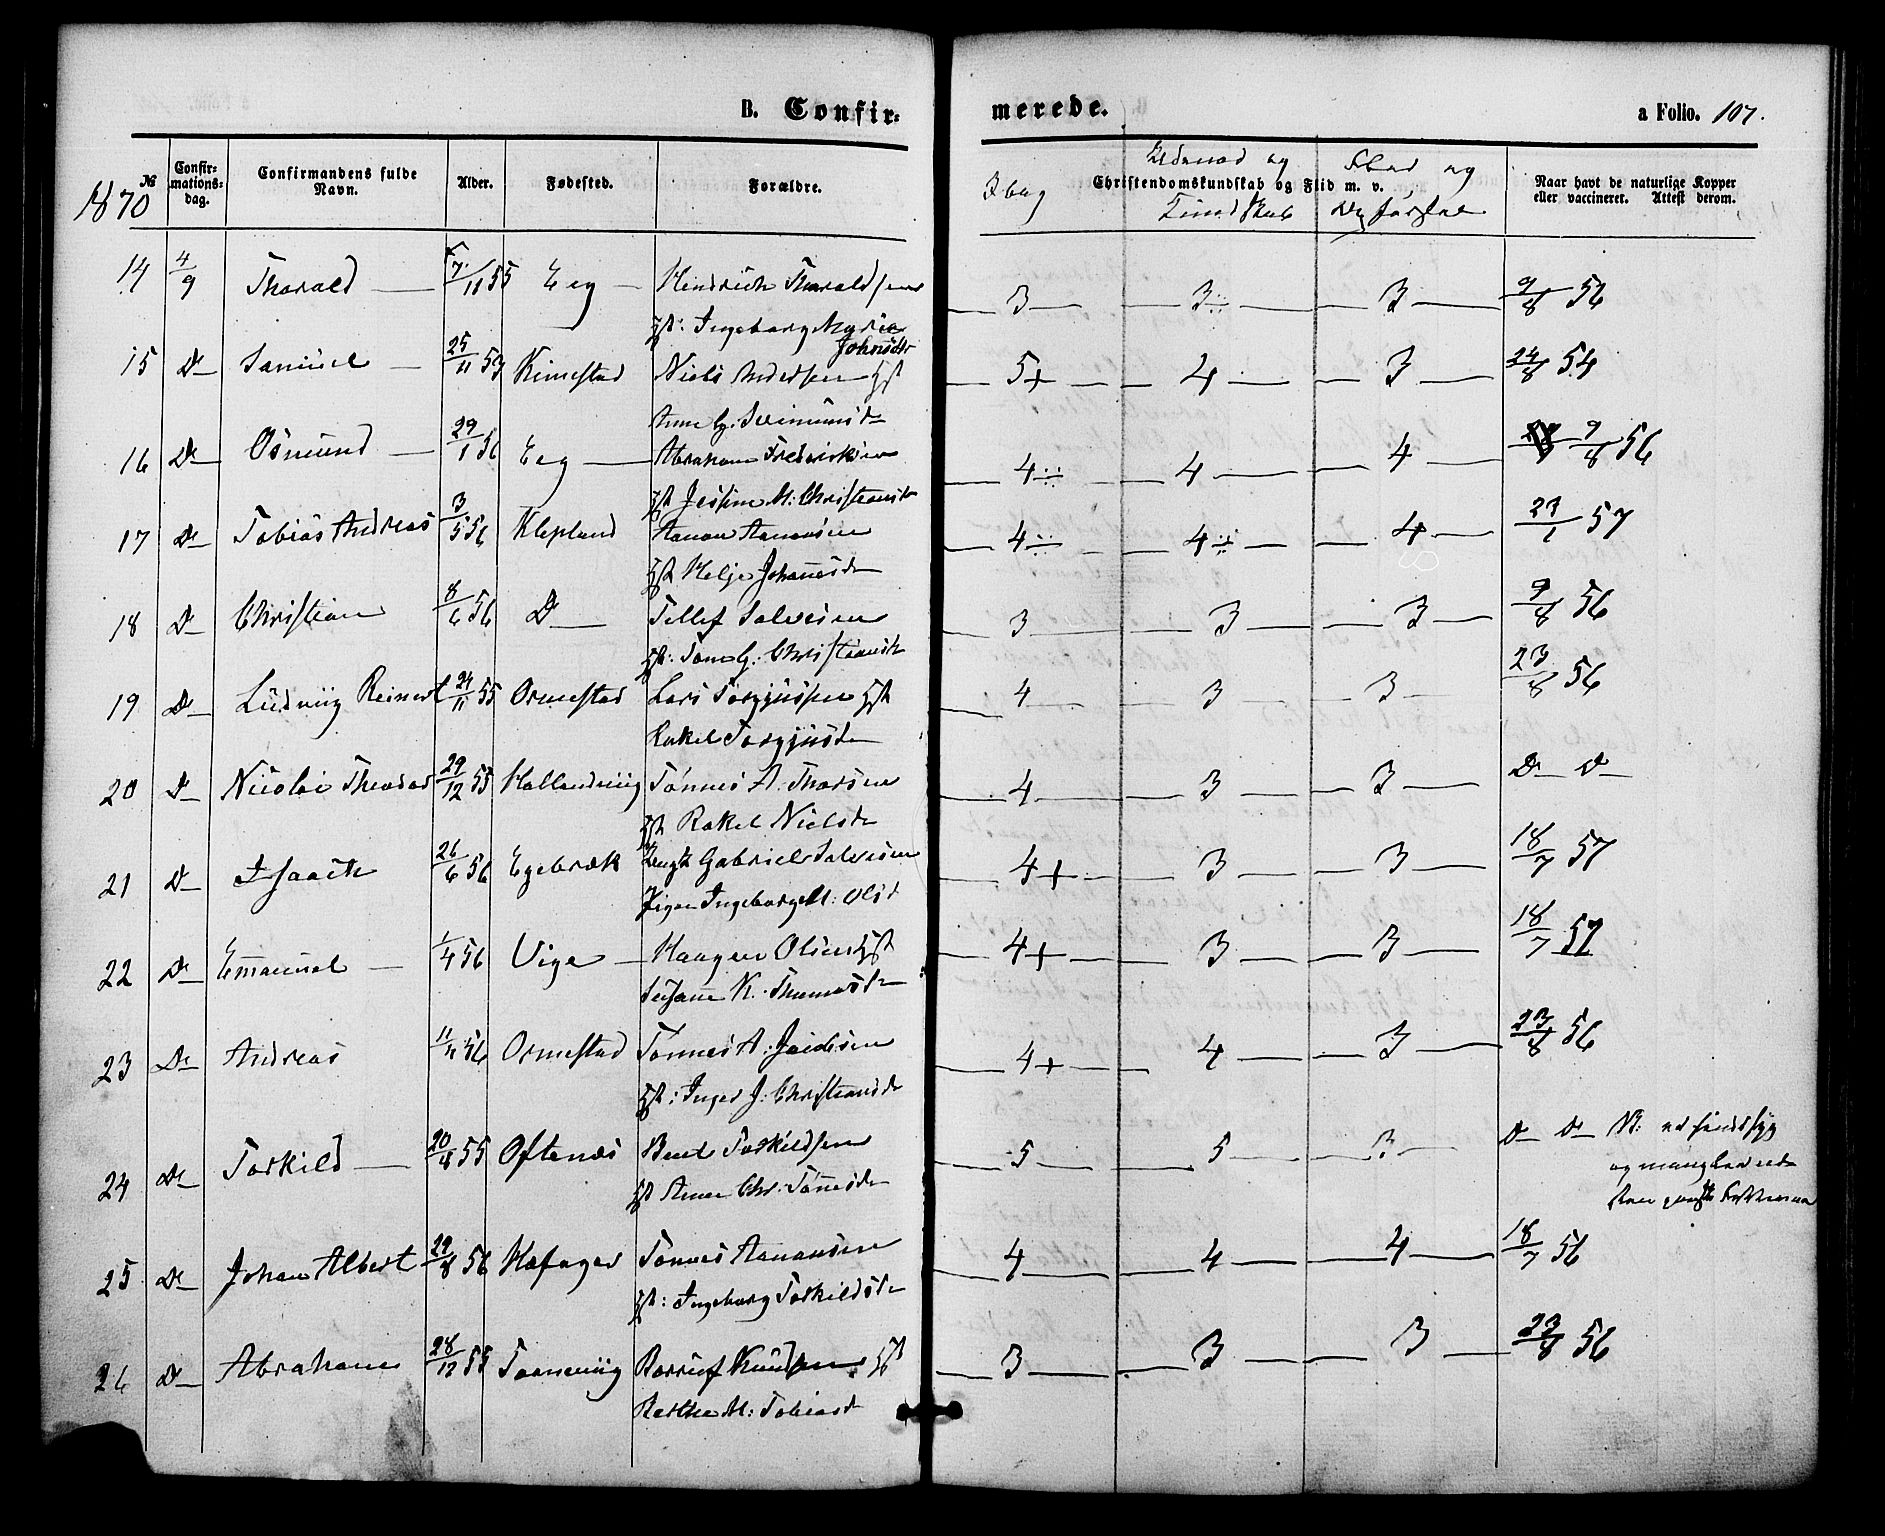 B. Confir-
merede.
a Folio. 107.
1870
№
Confir-
mations-
dag.
Confirmandens fulde
Navn.
Alder.
Fødested.
Forældre.
Christendomskundskab og Flid m. v.
Naar havt de naturlige Kopper
eller vaccineret. Attest derom.
14 4/9 Tharald 7/11 55 Eeg Hindrich Tharaldsen
Ingeborg Marie
Johnsdtr
3 3 3 9/8 56
15 D Samuel 25/11 53 Kimestad Niels Andersen
Anne G.
5+ 4 3 24/8 54
16 D Osmund 29/1 56 Eeg Abraham Fredriksen
Jesine M. Christiansd
4 4 4 9/8 56
17 D Tobias Andreas 3/5 56 Klepland Aanon Aanonsen
Helje Johanesd
4 4 4 23/1 57
18 D Christian 8/6 56 D Tellef Salvesen
G. Christiansd
3 3 3 9/8 56
19 D Ludvig Reinert 24/11 55 Ormestad Lars Torgjussen
Rakel Torgjusd
4 3 3 23/8 56
20 D Nicolai Theodor 29/12 55 Hallandviig Tönnes A. Thorsen
Rakel Nielsd
4 3 3 D D
21 D Isaach 26/6 56 Egebræk Gabriel Salvesen
Pigen Ingeborg M. Olsd
4+ 3 3 18/7 57
22 D Emanuel 1/4 56 Vige Haagen Olsen
Susanne K. Thomasd
4+ 3 3 18/7 57
23 D Andreas 11/4 56 Ormestad Tönnes A. Jacobsen
Inger J. Christiansd
4+ 4 3 23/8 56
24 D Torkild 20/8 55 Oftenes Bent Torkildsen
Anne Chr. Tönnesd
5 5 3 D D
25 D Johan Albert 29/8 56 Høfager Tönnes Aanonsen
Ingeborg Torkildsd
4 4 4 18/7 56
26 D Abraham 28/12 55 Tanneviig Knudsen
Berthe M. Tobiasd
3 3 3 23/8 56